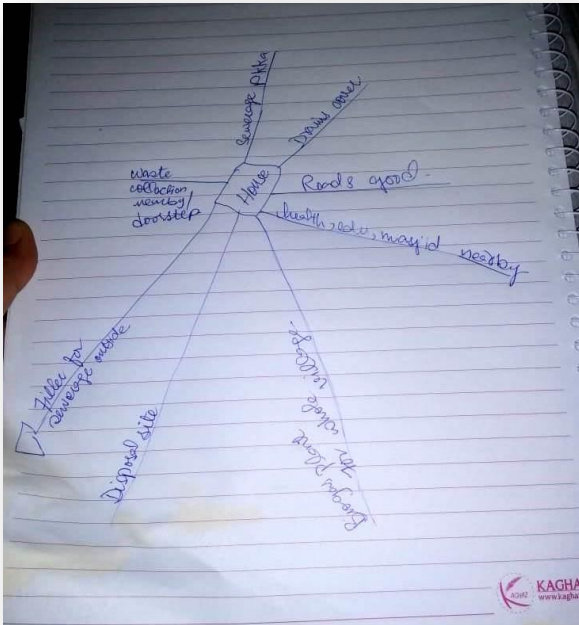 Sewerage pkka
Drains cover
waste
collection
nearby/
doorstep
House
Roads good.
health, edu, masjid nearby
Filter for
sewerage outside
Disposal site
Biogas plant
for whole village.
KAGHAZ
KAGHA
www.kagha